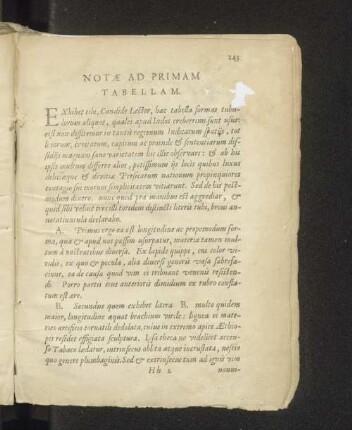 243
NOTÆ AD PRIMAM
TABELLAM.
EXhibet tibi, Candide Lector, hæc tabella formas tubu-
lorum aliquot, quales apud Indos creberrimi sunt usus:
est non dissiterer in tantis regionum Indicarum spatiis, tot
& morum, civitatum, captuum ac proinde & sententiarum dis-
sidiis magnam sane varietatem hic illic observari: & ab his
ipsis multum differre alias, potissimum iis locis quibus luxus
deliciæque & divitiæ Persicarum nationum propinquarum
contagio sui morum simplicitatem vitiarunt. Sed de his post-
modum dicere. nunc quod præ manibus est aggrediar, &
quod sibi velint præcisi ordine distincti literis tubi, brevi an-
notatiuncula declarabo.
A. Primus ergo ea est longitudine ac propemodum for-
ma, quâ & apud nos passim usurpatur, materia tamen mul-
tum à nostratibus diversa. Ex lapide quippe, cui color vi-
ridis, ex quo & pocula, alia diversi generis vasa fabrefa-
ciunt, ea de causa quod vim ei tribuant veneni resisten-
di. Porro partis eius anterioris dimidium ex rubro consta-
tum est ære.
B. Secundus quem exhibet litera B. multo quidem
maior, longitudine æquat brachium virile: lignea ei mate-
ries artificio vernatili dedolata, cuius in extremo apice Æthio-
pis residet effigiata sculptura. Ipsa theca ne videlicet accen-
so Tabaco lædatur, intrinsecus oblita atque incrustata, nescio
quo genere plumbaginis. Sed & extrinsecus tum ad ignis vim
Hh 2 nonni-